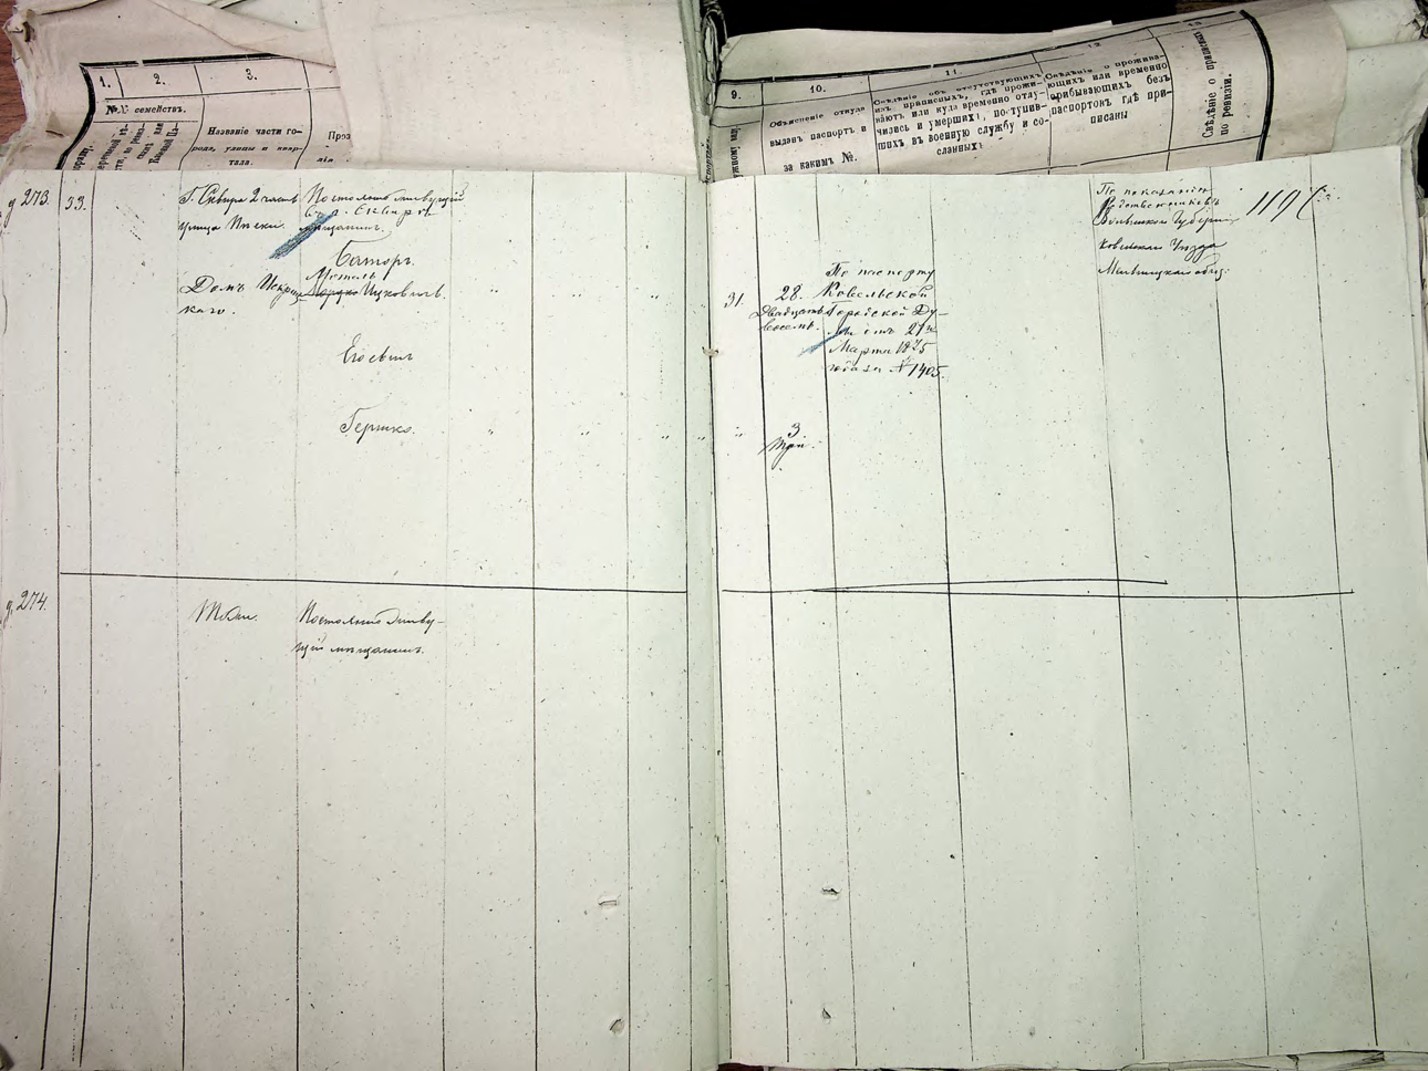 1. 2. 3.
№№ семействъ.
Названіе части го-
рода, улицы и квар-
тала.
9. 10. 11. 12 13
Объясненіе откуда
выданъ паспортъ и
за какимъ №.
Свѣдѣніе объ отсутствующихъ
изъ приписныхъ, гдѣ прожи-
ваютъ или куда временно отлу-
чились и умершихъ, поступив-
шихъ въ военную службу и со-
сланныхъ
Свѣдѣніе о прожива-
ющихъ или временно
прибывающихъ безъ
паспортовъ гдѣ при-
писаны
Свѣдѣніе о припискѣ
по ревизіи.
д 273. 53.
Г. Сквира 2 части
улица Пески.
Домъ
каго.
Постоянно живущій
въ г. Сквирѣ
мѣщанинъ.
Баторъ.
Мотель
Мордко Ицковичъ.
Его сынъ
Гершко.
31. 28.
Двадцать
восемь.
По паспорту
Ковельской
Городской Ду-
мы отъ 27го
Марта 1875
года за № 1405.
" 3
Три.
По показанію
Волынской Губерніи
Ковельскаго Уѣзда
общ:
119
д. 274.
Тоже.
Постоянно живу-
щій мѣщанинъ.